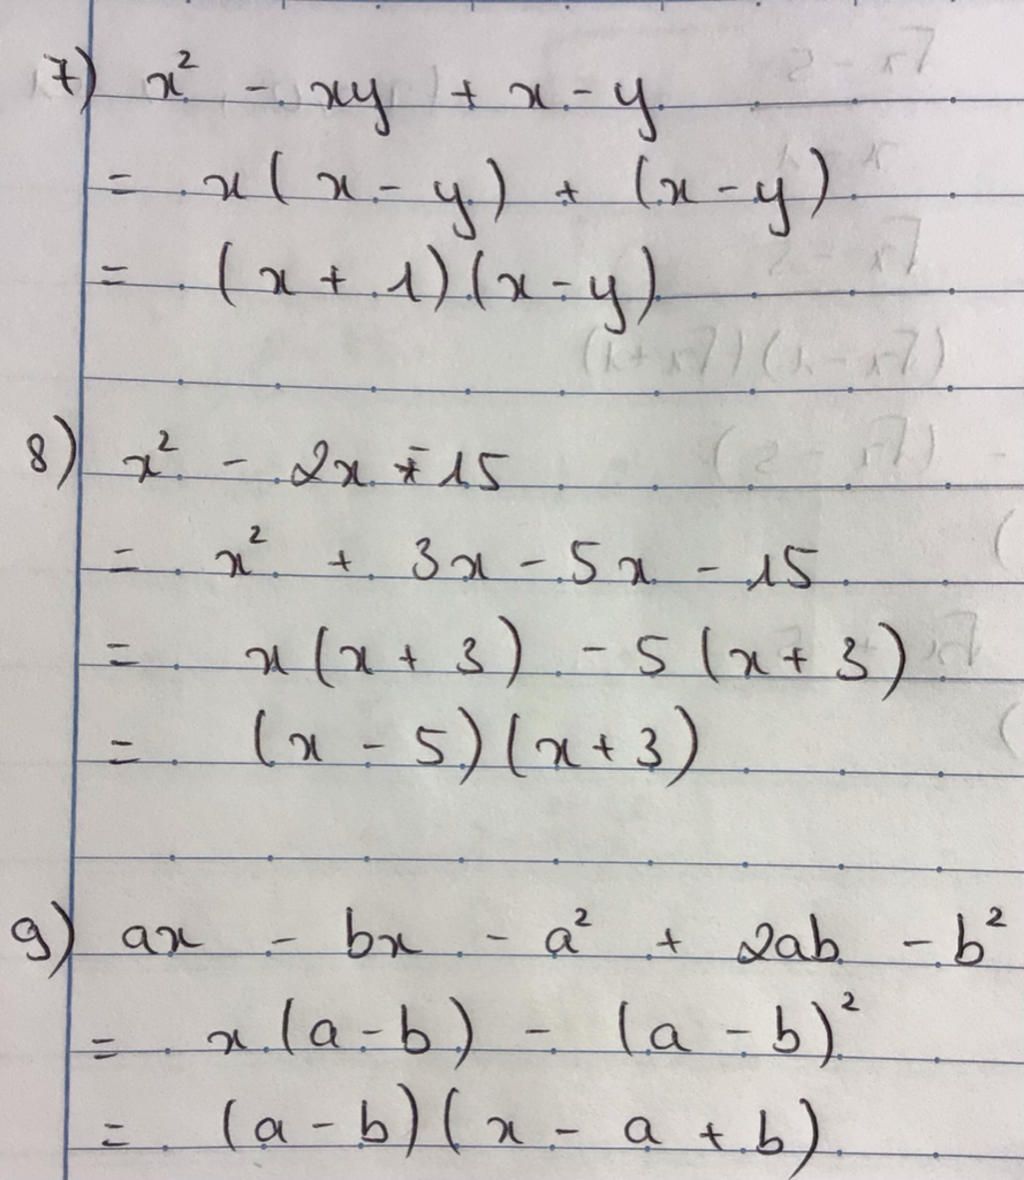 7) x² - xy + x - y
= x(x - y) + (x - y)
= (x + 1)(x - y)
8) x² - 2x - 15
= x² + 3x - 5x - 15
= x(x + 3) - 5(x + 3)
= (x - 5)(x + 3)
9) ax - bx - a² + 2ab - b²
= x(a - b) - (a - b)²
= (a - b)(x - a + b)